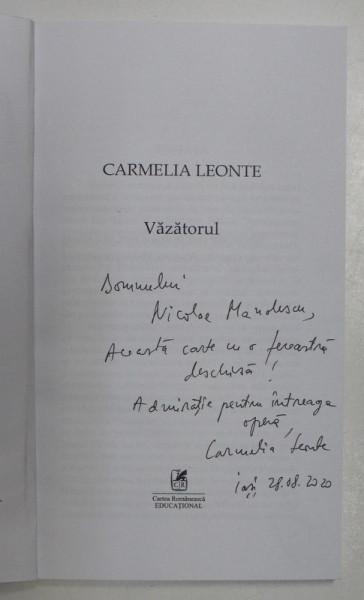 CARMELIA LEONTE
Văzătorul
Domnului
Nicolae Manolescu,
Această carte cu o fereastră
deschisă!
Admirație pentru întreaga
operă,
Carmelia Leonte
Iași 28.08.2020
CR
Cartea Românească
EDUCAȚIONAL